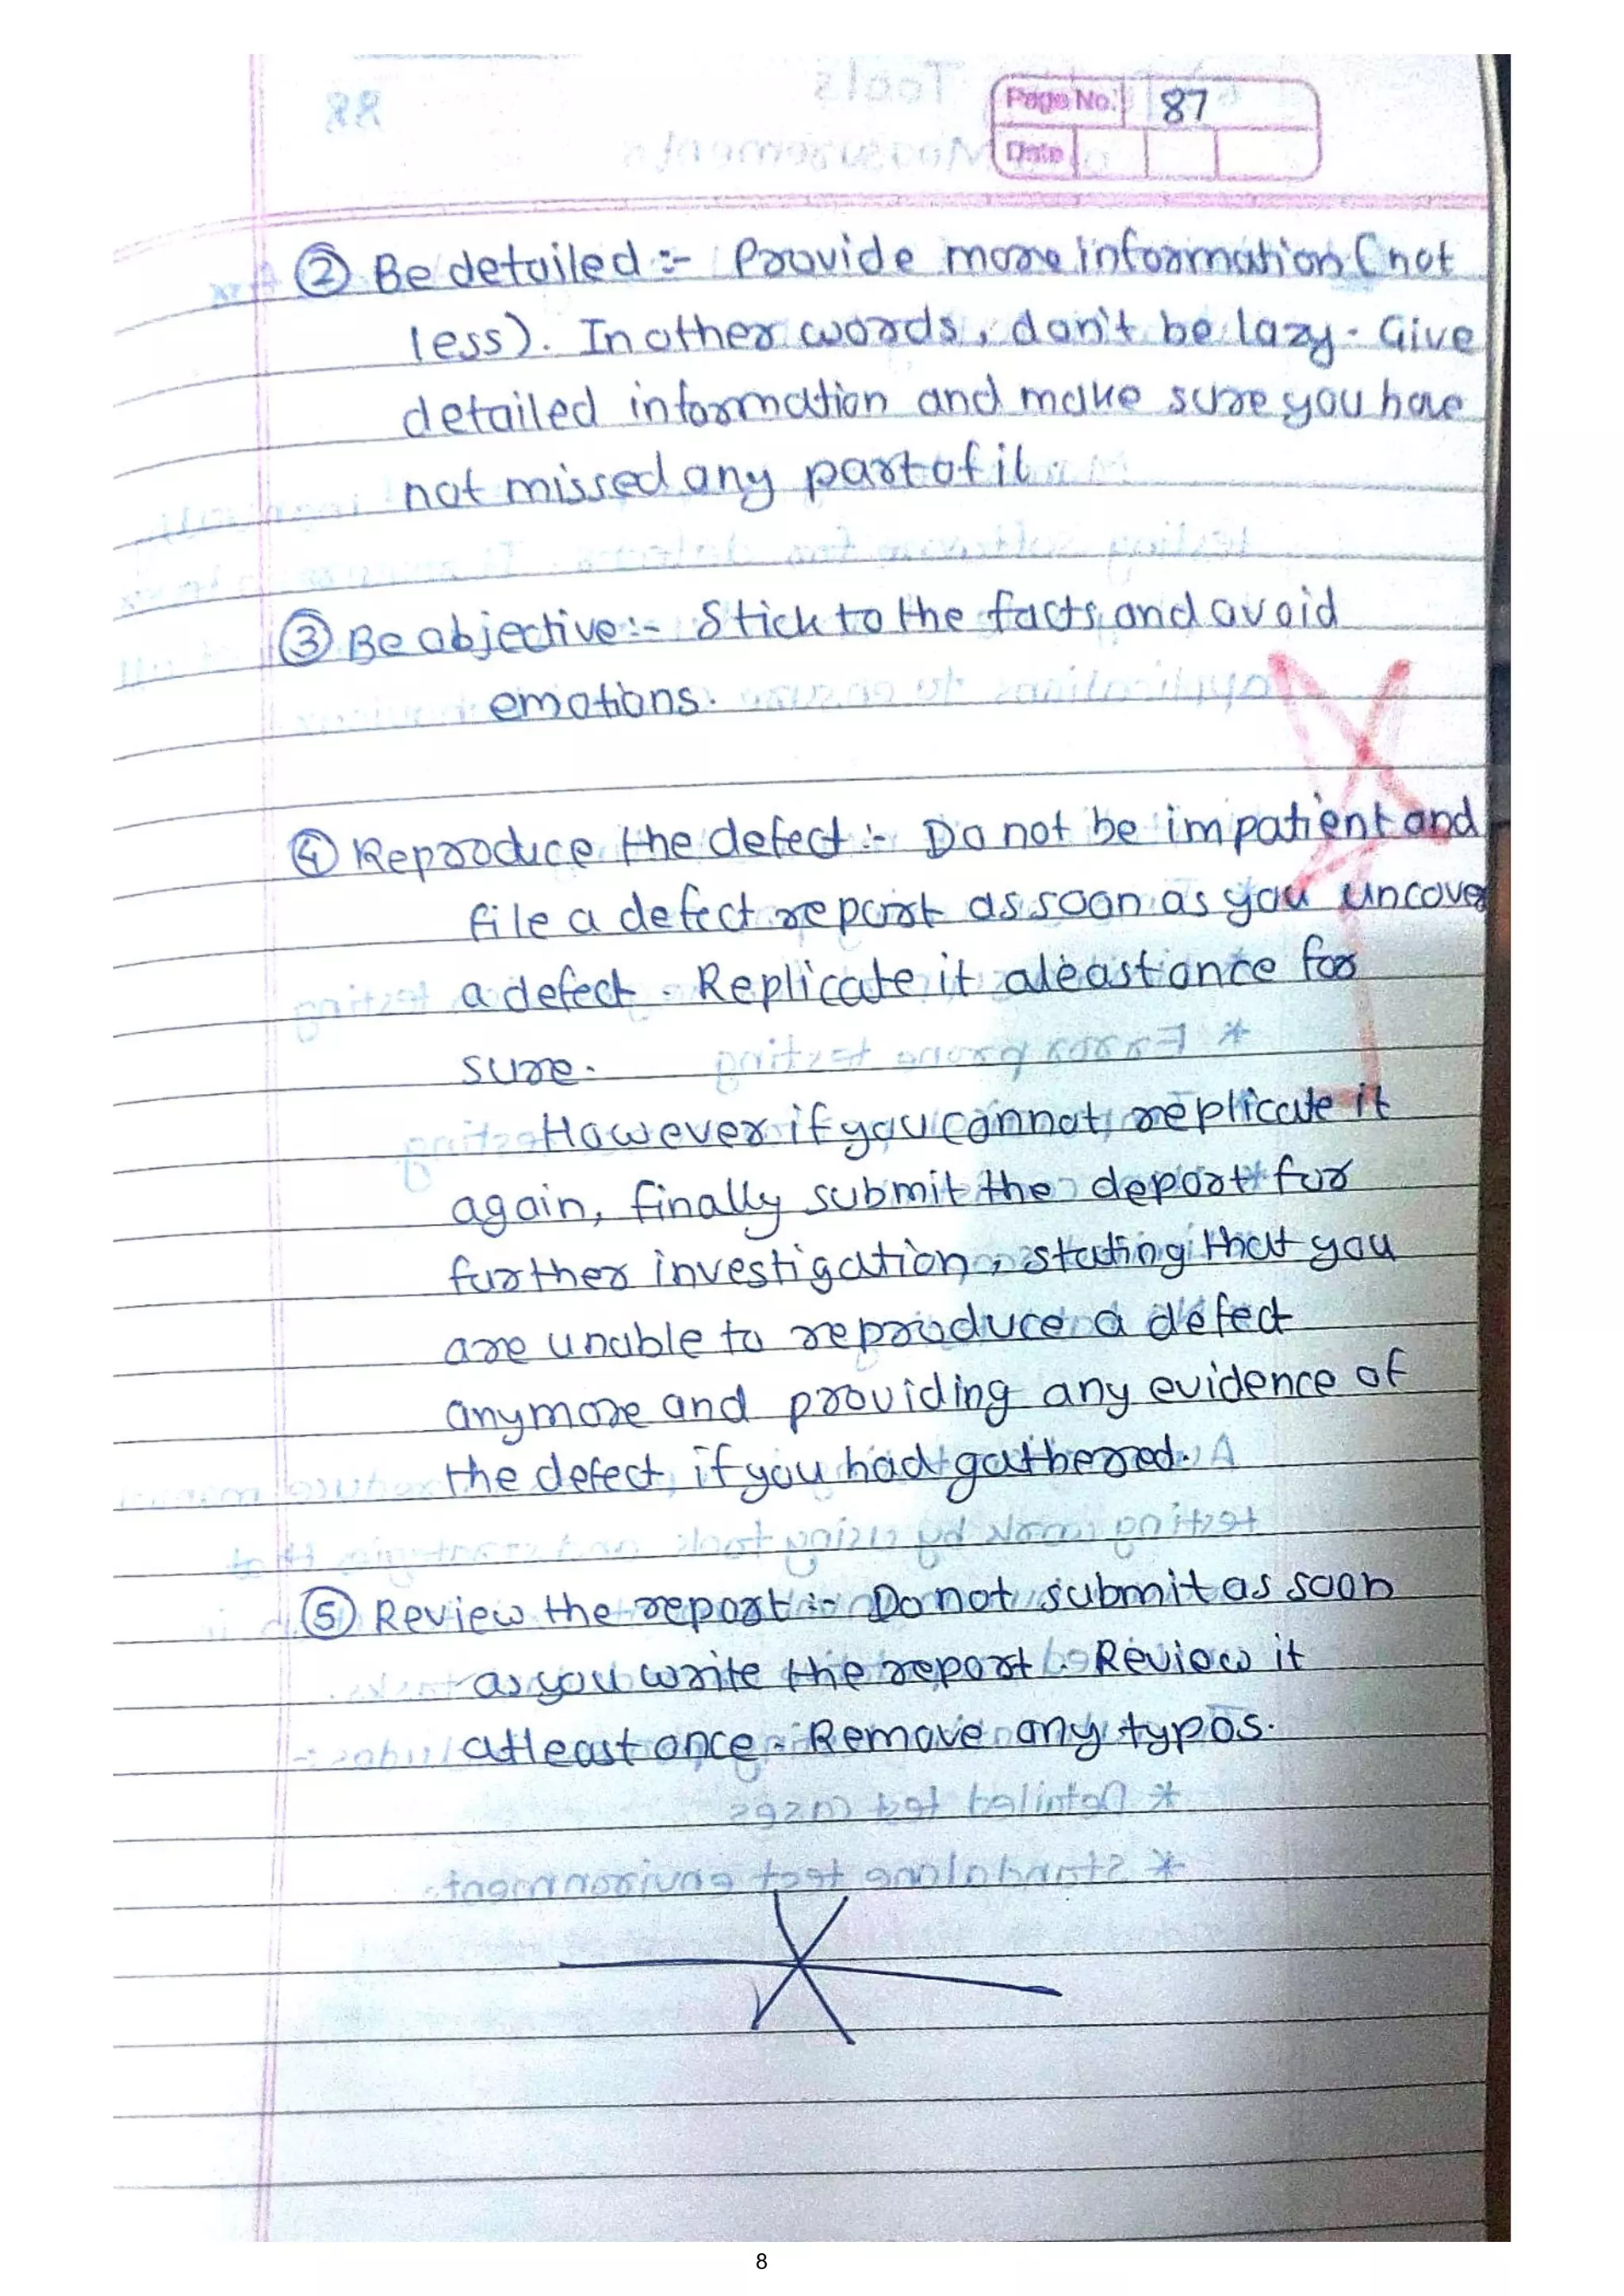 Page No. 87
Date
② Be detailed :- Provide more information (not
less). In other words, don't be lazy. Give
detailed information and make sure you have
not missed any part of it.
③ Be objective :- Stick to the facts and avoid
emotions.
④ Reproduce the defect :- Do not be impatient and
file a defect report as soon as you uncover
a defect. Replicate it aleast once for
sure.
However if you cannot replicate it
again, finally submit the deport for
further investigation, stating that you
are unable to reproduce a defect
anymore and providing any evidence of
the defect, if you had gathered.
⑤ Review the report :- Do not submit as soon
as you write the report. Review it
atleast once. Remove any typos.
8